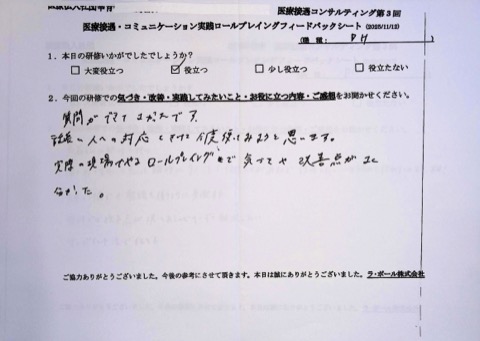 医療接遇コンサルティング第3回
医療接遇・コミュニケーション実践ロールプレイングフィードバックシート (2025/11/13)
(職種: DH)
1. 本日の研修いかがでしたでしょうか?
□ 大変役立つ ☑ 役立つ □ 少し役立つ □ 役立たない
2. 今回の研修での気づき・改善・実践してみたいこと・お役に立つ内容・ご感想をお聞かせください。
質問ができてよかったです。
人への対応 みようと思います。
実際の現場でやるロールプレイング 気づきや改善点がよく
分かった。
ご協力ありがとうございました。今後の参考にさせて頂きます。本日は誠にありがとうございました。ラ・ポール株式会社